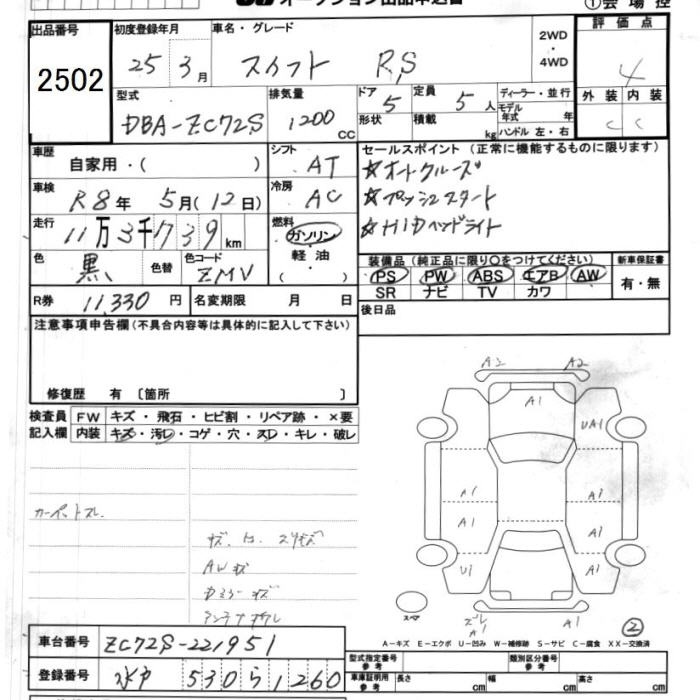 オークション出品申込書
①会場控
出品番号
2502
初度登録年月
25 3月
車名・グレード
スイフト RS
2WD
・
4WD
評価点
4
外装 内装
C C
型式
DBA-ZC72S
排気量
1200 CC
ドア 5
形状
定員 5人
積載 kg
ディーラー・並行
モデル年式 年
ハンドル 左・右
車歴
自家用・( )
シフト
AT
セールスポイント (正常に機能するものに限ります)
☆オートクルーズ
☆プッシュスタート
☆HIDヘッドライト
車検
R8年 5月(12日)
冷房
AC
走行
11万3千739km
燃料
ガソリン
軽油
( )
色
黒
色替
色コード
ZMV
装備品 (純正品に限り○をつけてください)
PS PW ABS エアB AW
SR ナビ TV カワ
新車保証書
有・無
R券 11,330円
名変期限 月 日
後日品
注意事項申告欄(不具合内容等は具体的に記入して下さい)
修復歴 有 〔箇所 〕
検査員記入欄
FW キズ・飛石・ヒビ割・リペア跡・×要
内装 キズ・汚レ・コゲ・穴・スレ・キレ・破レ
カーペットスレ
キズ、ヒョ、スリキズ
AWキズ
Dミラーキズ
A2 A2
A1
UA1
A1 A1
A1 A1
U1 A1
スペア
ズレ
A1
A1
②
A-キズ E-エクボ U-凹み W-補修跡 S-サビ C-腐食 XX-交換済
車台番号 ZC72S-221951
登録番号 水戸 530 ら 1260
型式指定番号 参考
類別区分番号 参考
車庫証明用 参考
長さ cm
幅 cm
高さ cm